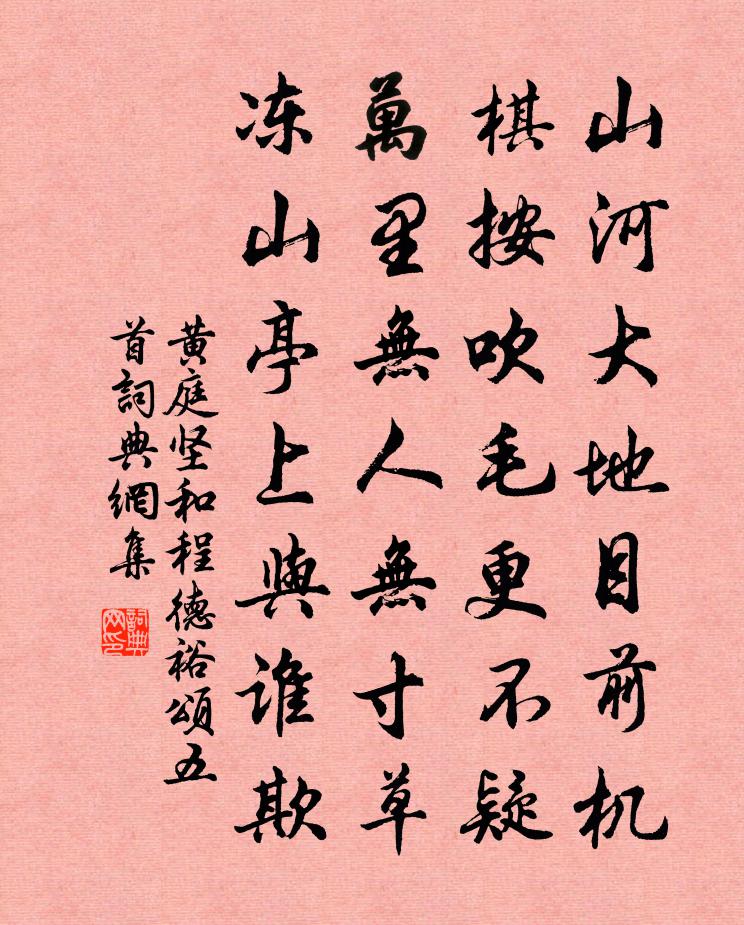 山河大地目前机
棋按吹毛更不疑
萬里無人無寸草
冻山亭上與谁欺
黄庭坚和程德裕頌五
首詞典網集
詞典網印